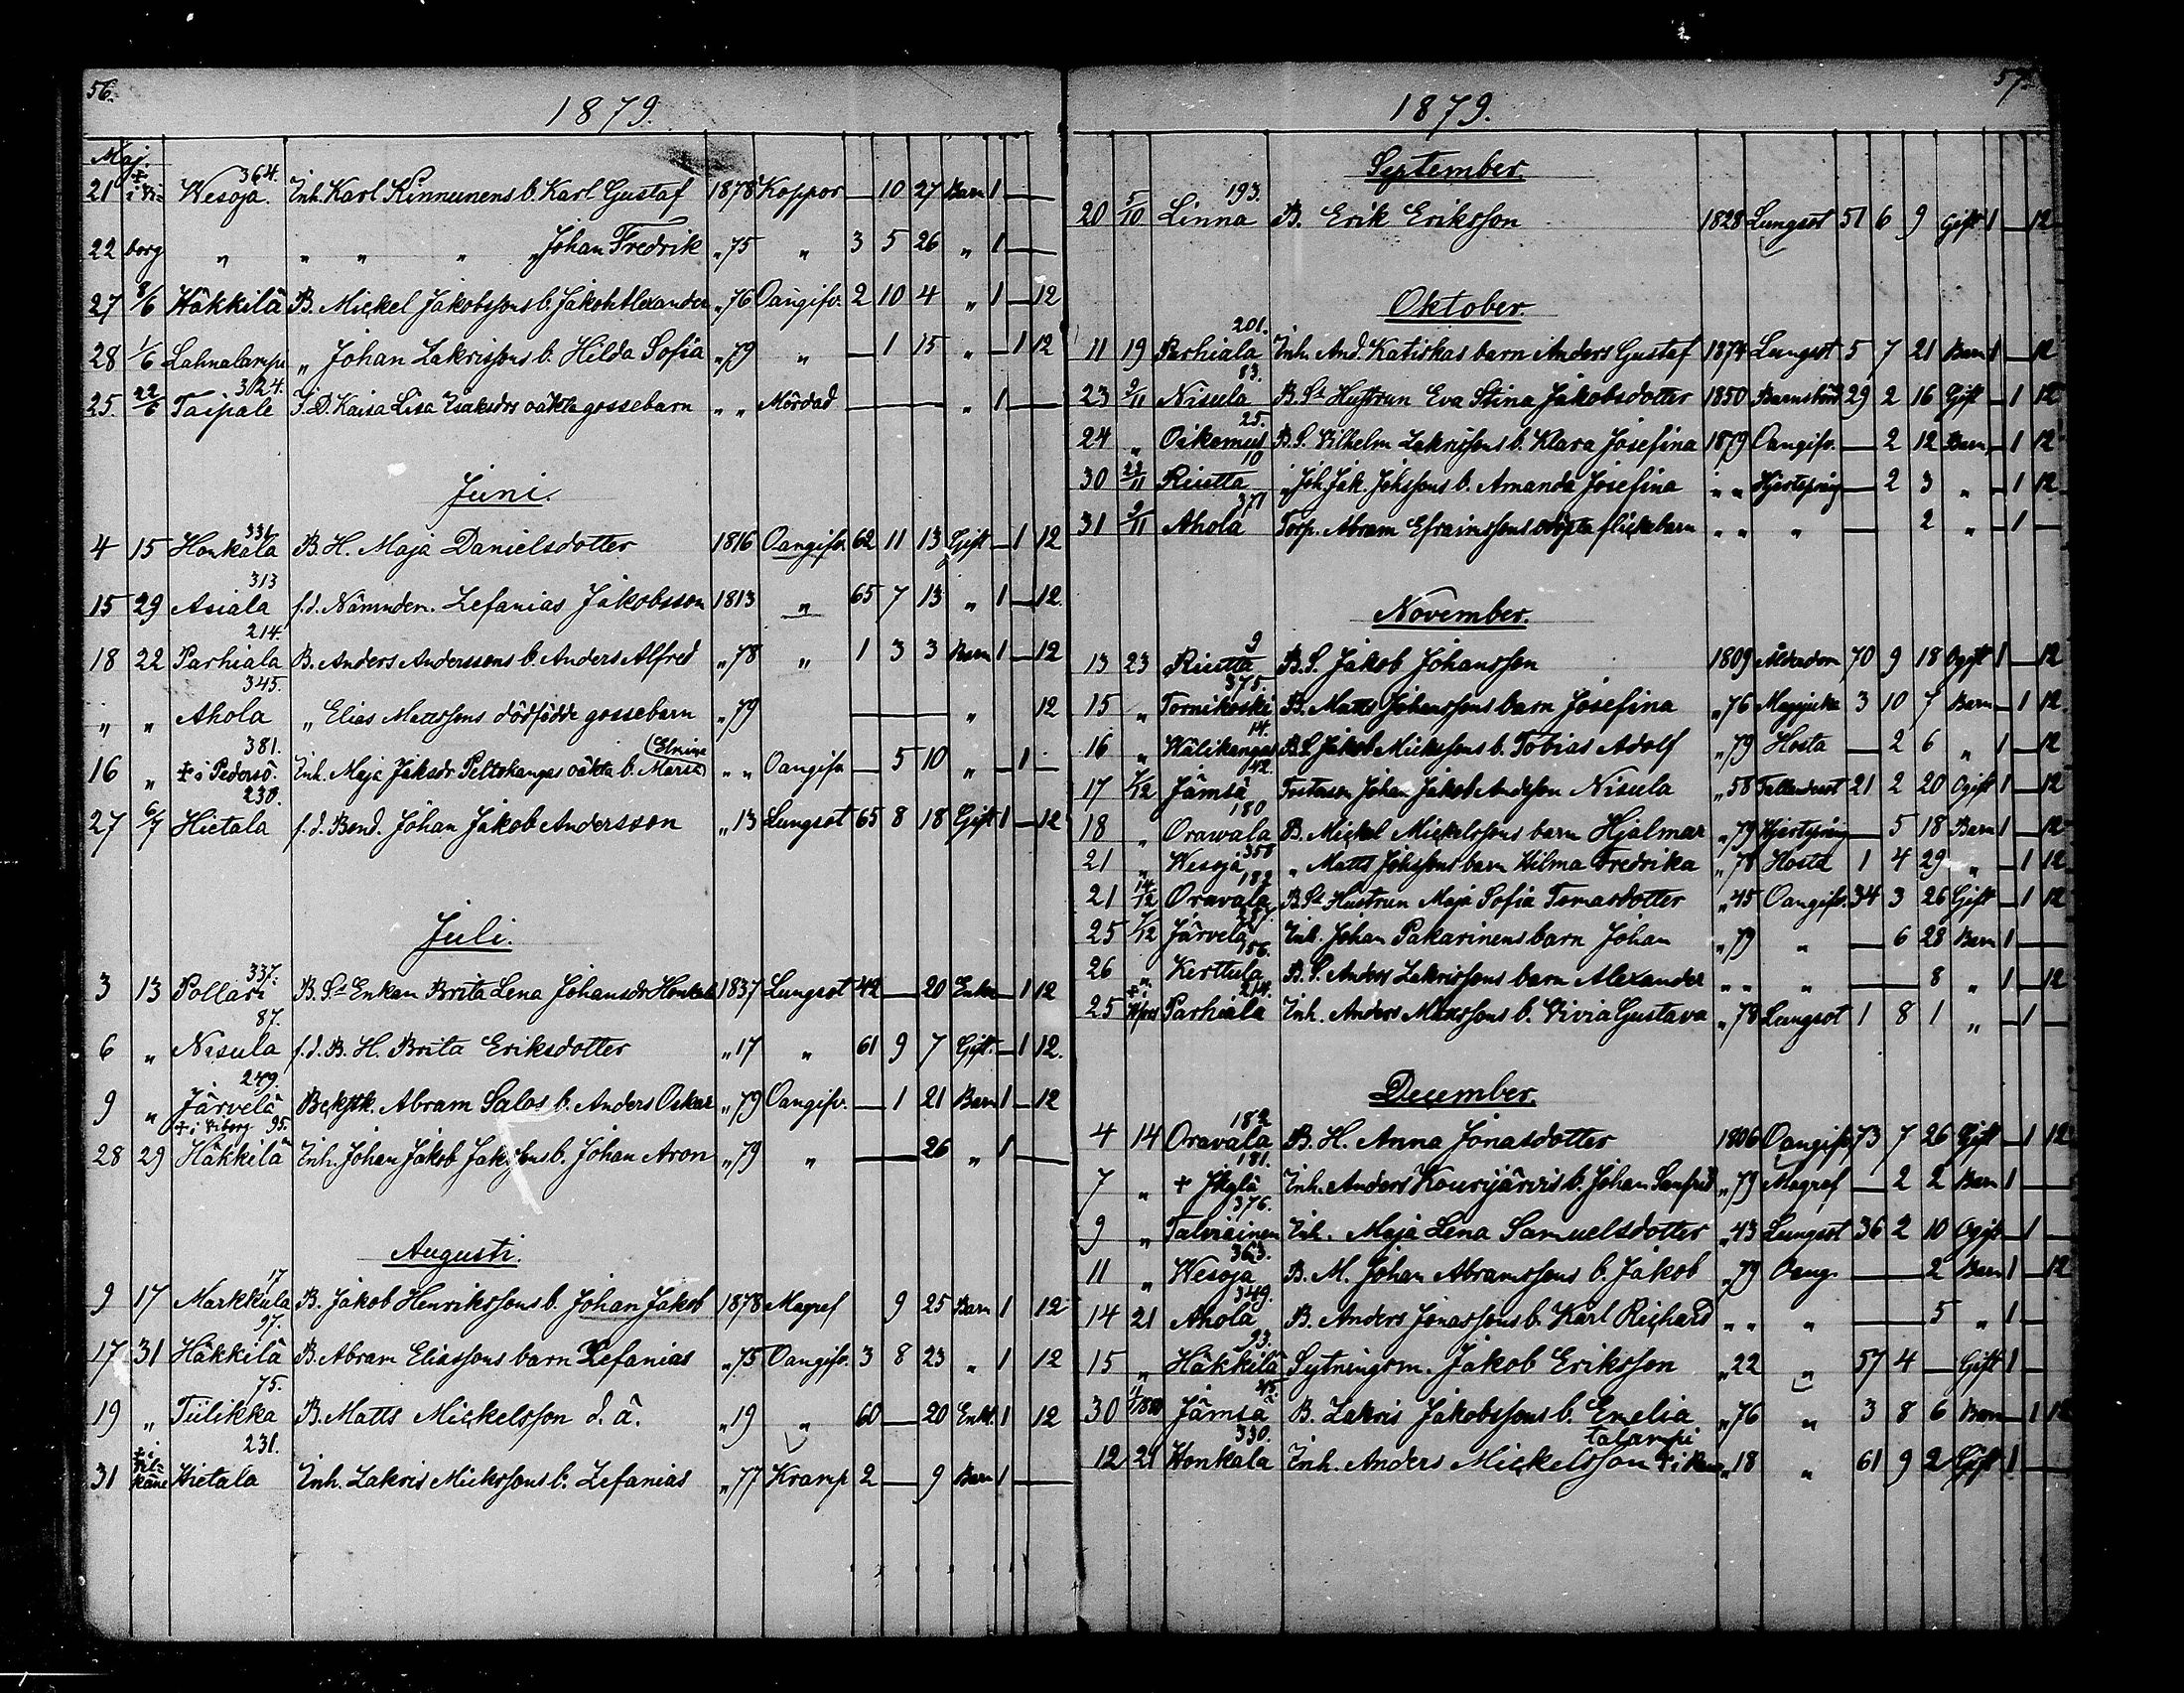 56.
1879.
Maj.
21 + i Vi- Wesoja. 364. Inh. Karl Kinnunens b. Karl Gustaf 1878 Koppor — 10 27 Barn 1 —
22 borg " " " " " Johan Fredrik " 75 " 3 5 26 " 1 —
27 8/6 Häkkilä B. Mickel Jakobssons b. Jakob Alexander " 76 Oangifv. 2 10 4 " 1 — 12
28 1/6 Lahnalampi " Johan Zakrissons b. Hilda Sofia " 79 " — 1 15 " — 1 12
25. 22/6 Taipale 324. I. D. Kaisa Lisa Isaksdrs oäkta gossebarn " " Mördad — " 1 —
Juni.
4 15 Honkala 331. B. H. Maja Danielsdotter 1816 Oangifv. 62 11 13 Gift — 1 12
15 29 Asiala 313 f.d. Nämndem. Zefanias Jakobsson 1813 " 65 7 13 " 1 — 12.
18 22 Parhiala 214. B. Anders Anderssons b. Anders Alfred " 78 " 1 3 3 Barn 1 — 12
" " Ahola 345. " Elias Mattssons dödfödde gossebarn " 79 — " 12
16 " + i Pedersö. 381. Inh. Maja Jaksdr Peltokangas oäkta b. Maria (Elvina) " " Oangifv. — 5 10 " — 1 —
27 6/7 Hietala 230. f.d. Bond. Johan Jakob Andersson " 13 Lungsot 65 8 18 Gift 1 — 12
Juli.
3 13 Pollari 337. B. Ss Enkan Brita Lena Johansdr Honkala 1837 Lungsot 42 — 20 Enka — 1 12
6 " Nisula 87. f.d. B. H. Brita Eriksdotter " 17 " 61 9 7 Gift. — 1 12.
9 " Järvelä 249. Beksttk. Abram Salos b. Anders Oskar " 79 Oangifv. — 1 21 Barn 1 — 12
28 29 + i Viborg 95. Häkkilä Inh. Johan Jakob Jakssons b. Johan Aron " 79 " — 26 " 1 —
Augusti.
9 17 Markkula 17 B. Jakob Henrikssons b. Johan Jakob 1878 Magref 9 25 Barn 1 12
17 31 Häkkilä 97. B. Abram Eliassons barn Zefanias " 75 Oangifv. 3 8 23 " 1 12
19 " Tiilikka 75. B. Matts Mickelsson d. ä. " 19 " 60 — 20 Enkl. 1 12
31 Hietala 231. Inh. Zakris Mickssons b. Zefanias " 77 Kramp 2 — 9 Barn 1 —
57.
1879.
September.
20 5/10 Linna 193. B. Erik Eriksson 1828 Lungsot 51 6 9 Gift 1 — 12
Oktober.
11 19 Parhiala 201. Inh. And. Katiskas barn Anders Gustaf 1874 Lungsot 5 7 21 Barn 1 — 12
23 2/11 Nisula 83. B. Ss Hustrun Eva Stina Jakobsdotter 1850 Barnsbörd 29 2 16 Gift — 1 12
24 " Oikemus 25. B. S. Vilhelm Zakrissons b. Klara Josefina 1879 Oangifv. — 2 12 Barn — 1 12
30 22/11 Risetta 10 " Joh. Jak. Johssons b. Amanda Josefina " " Hjertspräng — 2 3 " — 1 12
31 2/11 Ahola 371 Torp. Abram Efraimssons odöpta flickebarn " " " — 2 " 1 —
November.
13 23 Risetta 9 B. S. Jakob Johansson 1809 Ålderdom 70 9 18 Ogift 1 — 12
15 " Tornikoski 375. B. Matts Johanssons barn Josefina " 76 Magsjuka 3 10 7 Barn — 1 12
16 " Wälikangas 14. B. S. Jakob Mickssons b. Tobias Adolf " 79 Hosta — 2 6 " 1 — 12
17 7/12 Jämsä 42. Johan Jakob Andsson Nisula " 58 Fallandesot 21 2 20 Ogift 1 — 12
18 " Orawala 180 B. Mickel Mickelssons barn Hjalmar " 79 Hjertspräng — 5 18 Barn 1 — 12
21 " Wesoja 358 " Matts Johssons barn Hilma Fredrika " 78 Hosta 1 4 29 " — 1 12
21 14/12 Oravala 182 B. Ss Hustrun Maja Sofia Tomasdotter " 45 Oangifv. 34 3 26 Gift — 1 12
25 7/12 Järvelä Inh. Johan Pakarinens barn Johan " 79 " — 6 28 Barn 1 —
26 " Kerttula 56. B. S. Anders Zakrissons barn Alexander " " " — 8 " 1 — 12
25 Parhiala 214. Inh. Anders Mattssons b. Vivia Gustava " 78 Lungsot 1 8 1 " — 1 —
December.
4 14 Oravala 182 B. H. Anna Jonasdotter 1806 Oangifv. 73 7 26 Gift — 1 12
7 " + Jkylä 181. Inh. Anders Kourijärvis b. Johan Sanfrid " 79 Magref — 2 2 Barn 1 —
9 " Talviainen 376. Inh. Maja Lena Samuelsdotter " 43 Lungsot 36 2 10 Ogift — 1 —
11 " Wesoja 363. B. M. Johan Abramssons b. Jakob " 79 Oang. — 2 Barn 1 — 12
14 21 Ahola 349. B. Anders Jonassons b. Karl Richard " " " — 5 " 1
15 " Häkkilä 93. Sytningsm. Jakob Eriksson " 22 " 57 4 — Gift 1 —
30 4/1 80 Jämsä 45. B. Zakris Jakobssons b. Emelia " 76 " 3 8 6 Barn — 1 12
12 21 Honkala 330. Inh. Anders Mickelsson + i Ran-
talampi " 18 " 61 9 2 Gift 1 —